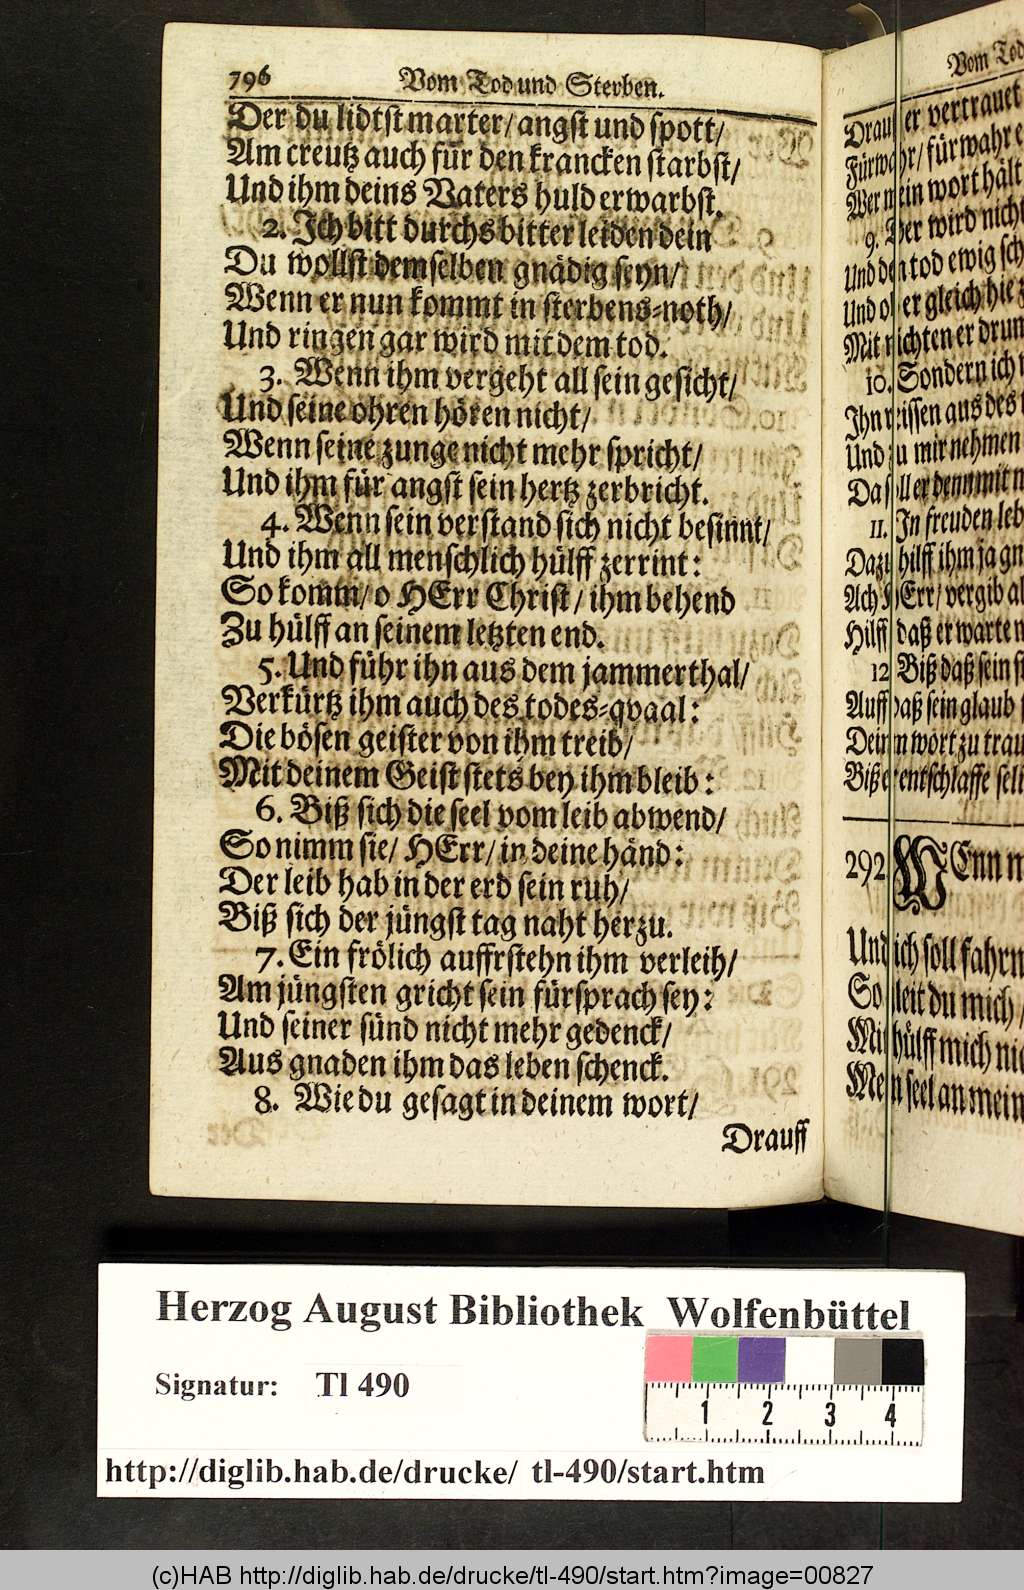 796 Vom Tod und Sterben.
Der du lidtst marter/ angst und spott/
Am creutz auch für den krancken starbst/
Und ihm deins Vaters huld erwarbst.
2. Ich bitt durchs bitter leiden dein
Du wollst demselben gnädig seyn/
Wenn er nun kommt in sterbens-noth/
Und ringen gar wird mit dem tod.
3. Wenn ihm vergeht all sein gesicht/
Und seine ohren hören nicht/
Wenn seine zunge nicht mehr spricht/
Und ihm für angst sein hertz zerbricht.
4. Wenn sein verstand sich nicht besinnt/
Und ihm all menschlich hülff zerrint:
So komm/ o HErr Christ/ ihm behend
Zu hülff an seinem letzten end.
5. Und führ ihn aus dem jammerthal/
Verkürtz ihm auch des todes-qvaal:
Die bösen geister von ihm treib/
Mit deinem Geist stets bey ihm bleib:
6. Biß sich die seel vom leib abwend/
So nimm sie/ HErr/ in deine händ:
Der leib hab in der erd sein ruh/
Biß sich der jüngst tag naht herzu.
7. Ein frölich auffrstehn ihm verleih/
Am jüngsten gricht sein fürsprach sey:
Und seiner sünd nicht mehr gedenck/
Aus gnaden ihm das leben schenck.
8. Wie du gesagt in deinem wort/
Drauff
Vom Tod
Drauf er vertrauet
Fürwahr/ fürwahr
Wer mein wort hält
9. Der wird nicht
Und den tod ewig
Und ob er gleich hie
Mit nichten er drum
10. Sondern ich
Ihn reissen aus des
Und zu mir nehmen
Da soll er denn mit
11. In freuden leb
Dazu hilff ihm ja
Ach HErr/ vergib
Hilff daß er warte
12 Biß daß sein
Auff daß sein glaub
Deinm wort zu
Biß er entschlaffe
292 WEnn
Und ich soll fahrn
So leit du mich/
Mit hülff mich
Mein seel an mein
Herzog August Bibliothek Wolfenbüttel
Signatur: Tl 490
1 2 3 4
http://diglib.hab.de/drucke/ tl-490/start.htm
(c)HAB http://diglib.hab.de/drucke/tl-490/start.htm?image=00827